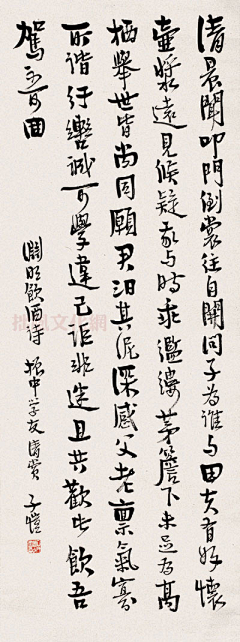 清晨聞叩門倒裳往自開問子為誰與田父有好懷
壺漿遠見候疑我與時乖濫縷茅簷下未足為高
栖舉世皆尚同願君汩其泥深感父老稟氣寡
所諧紆轡誠可學違己詎非迷且共歡此飲吾
駕不可回
淵明飲酒詩 振中學友清賞 子愷
拙風文化網